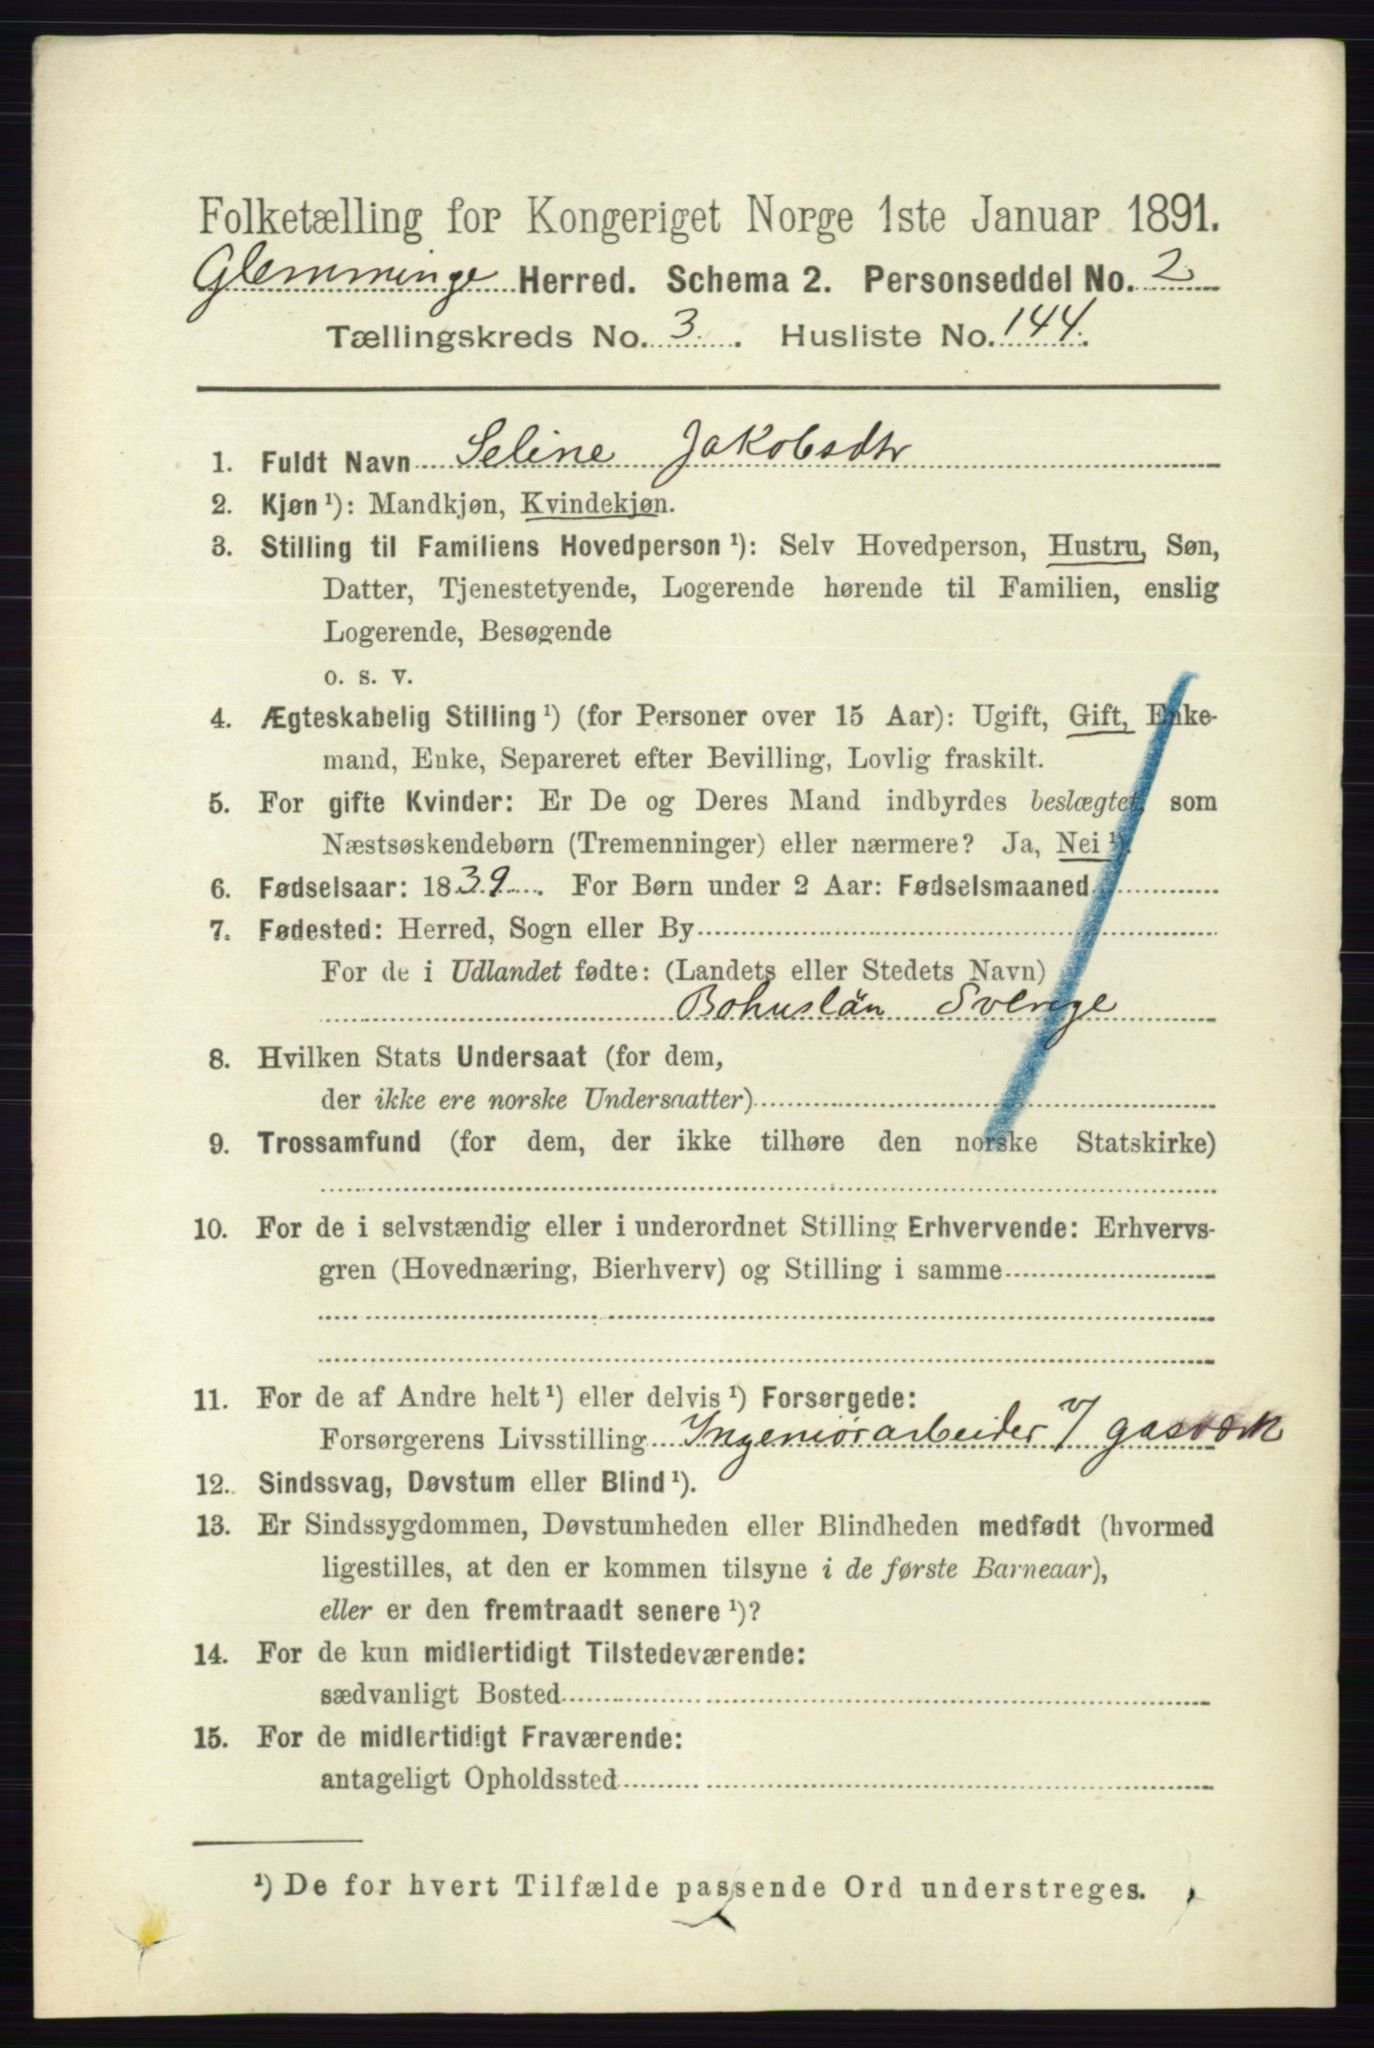 Folketælling for Kongeriget Norge 1ste Januar 1891.
Glemminge Herred. Schema 2. Personseddel No. 2
Tællingskreds No. 3. Husliste No. 144.
1. Fuldt Navn Seline Jakobsdtr
2. Kjøn ¹): Mandkjøn, Kvindekjøn.
3. Stilling til Familiens Hovedperson ¹): Selv Hovedperson, Hustru, Søn,
Datter, Tjenestetyende, Logerende hørende til Familien, enslig
Logerende, Besøgende
o. s. v.
4. Ægteskabelig Stilling ¹) (for Personer over 15 Aar): Ugift, Gift, Enke-
mand, Enke, Separeret efter Bevilling, Lovlig fraskilt.
5. For gifte Kvinder: Er De og Deres Mand indbyrdes beslægtet, som
Næstsøskendebørn (Tremenninger) eller nærmere? Ja, Nei ¹).
6. Fødselsaar: 1839. For Børn under 2 Aar: Fødselsmaaned
7. Fødested: Herred, Sogn eller By
For de i Udlandet fødte: (Landets eller Stedets Navn)
Bohuslän Sverige
8. Hvilken Stats Undersaat (for dem,
der ikke ere norske Undersaatter)
9. Trossamfund (for dem, der ikke tilhøre den norske Statskirke)
10. For de i selvstændig eller i underordnet Stilling Erhvervende: Erhvervs-
gren (Hovednæring, Bierhverv) og Stilling i samme
11. For de af Andre helt ¹) eller delvis ¹) Forsørgede:
Forsørgerens Livsstilling Ingeniørarbeider gasværk
12. Sindssvag, Døvstum eller Blind ¹).
13. Er Sindssygdommen, Døvstumheden eller Blindheden medfødt (hvormed
ligestilles, at den er kommen tilsyne i de første Barneaar),
eller er den fremtraadt senere ¹)?
14. For de kun midlertidigt Tilstedeværende:
sædvanligt Bosted
15. For de midlertidigt Fraværende:
antageligt Opholdssted
¹) De for hvert Tilfælde passende Ord understreges.